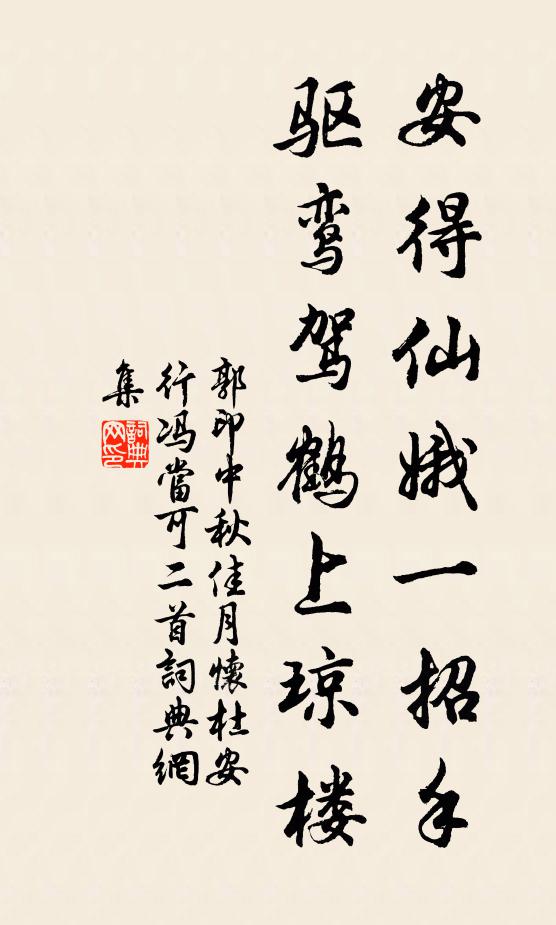 安得仙娥一招手
驱鸾驾鹤上琼楼
郭印中秋佳月懷杜安
行冯當可二首詞典網
集
詞典
网印